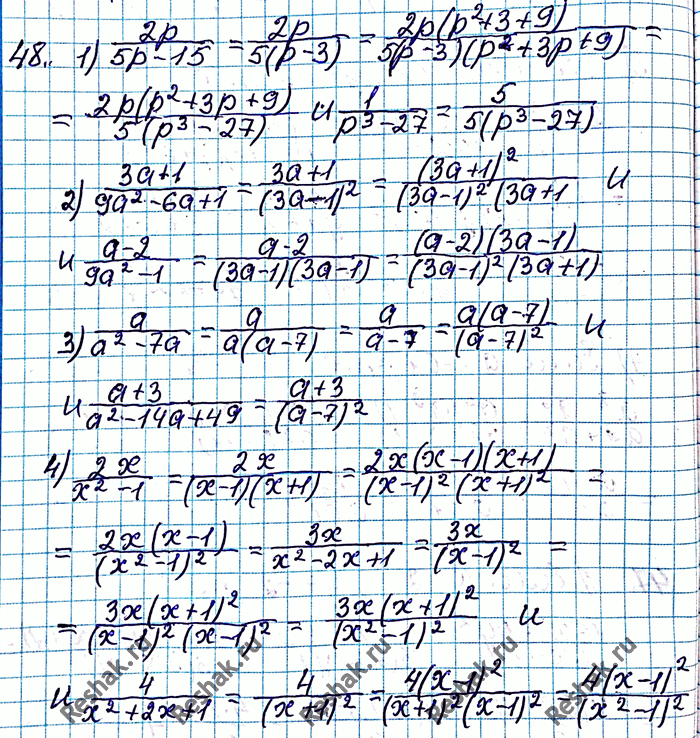 48.. 1) 2p/(5p-15) = 2p/(5(p-3)) = 2p(p²+3+9)/(5(p-3)(p²+3p+9)) =
= 2p(p²+3p+9)/(5(p³-27)) и 1/(p³-27) = 5/(5(p³-27))
2) (3a+1)/(9a²-6a+1) = (3a+1)/(3a-1)² = (3a+1)²/((3a-1)²(3a+1 и
и (a-2)/(9a²-1) = (a-2)/((3a-1)(3a-1)) = (a-2)(3a-1)/((3a-1)²(3a+1))
3) a/(a²-7a) = a/(a(a-7)) = a/(a-7) = a(a-7)/(a-7)² и
и (a+3)/(a²-14a+49) = (a+3)/(a-7)²
4) 2x/(x²-1) = 2x/((x-1)(x+1)) = 2x(x-1)(x+1)/((x-1)²(x+1)²) =
= 2x(x-1)/(x²-1)² = 3x/(x²-2x+1) = 3x/(x-1)² =
= 3x(x+1)²/((x-1)²(x-1)²) = 3x(x+1)²/(x²-1)² и
и 4/(x²+2x+1) = 4/(x+1)² = 4(x-1)²/((x+1)²(x-1)²) = 4(x-1)²/(x²-1)²
Reshak.ru
Reshak.ru
Reshak.ru
Reshak.ru
Reshak.ru